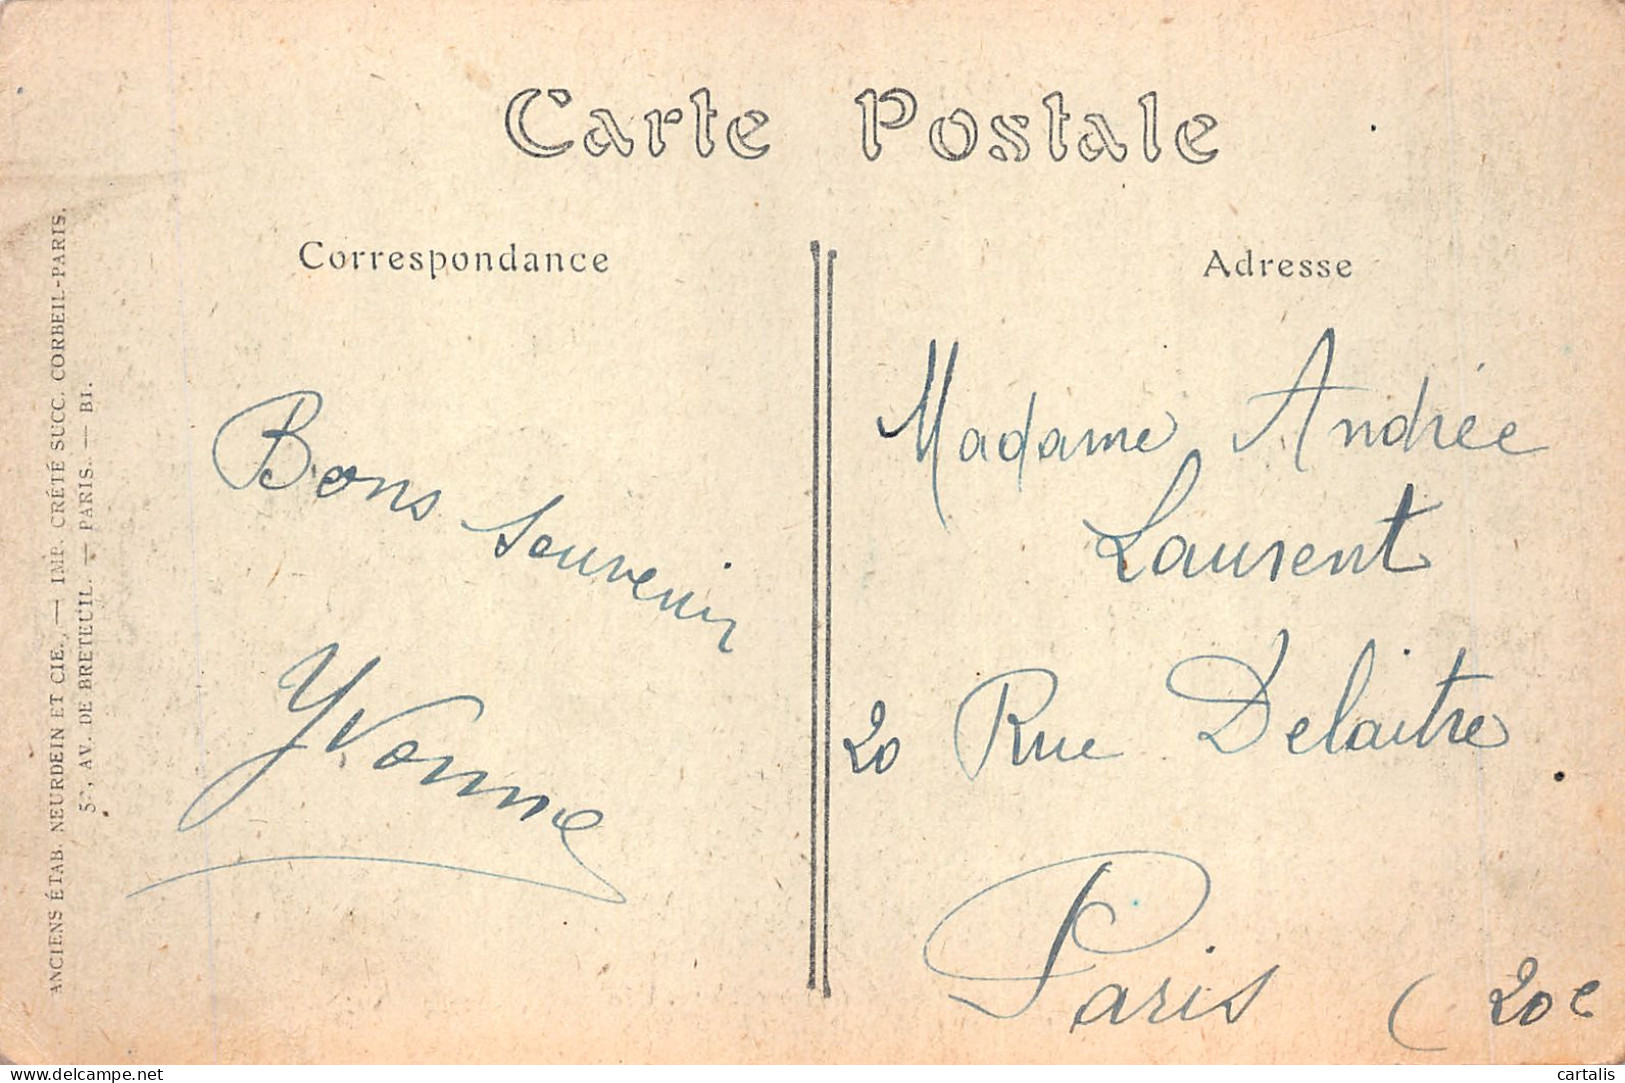 Carte Postale
Correspondance
Adresse
Bons Souvenir
Yvonne
Madame Andrée
Laurent
20 Rue Delaitre
Paris (20e
ANCIENS ÉTAB. NEURDEIN ET CIE., — IMP. CRÉTÉ SUCC. CORBEIL-PARIS.
AV. DE BRETEUIL. — PARIS. — BI.
delcampe.net
cartalis